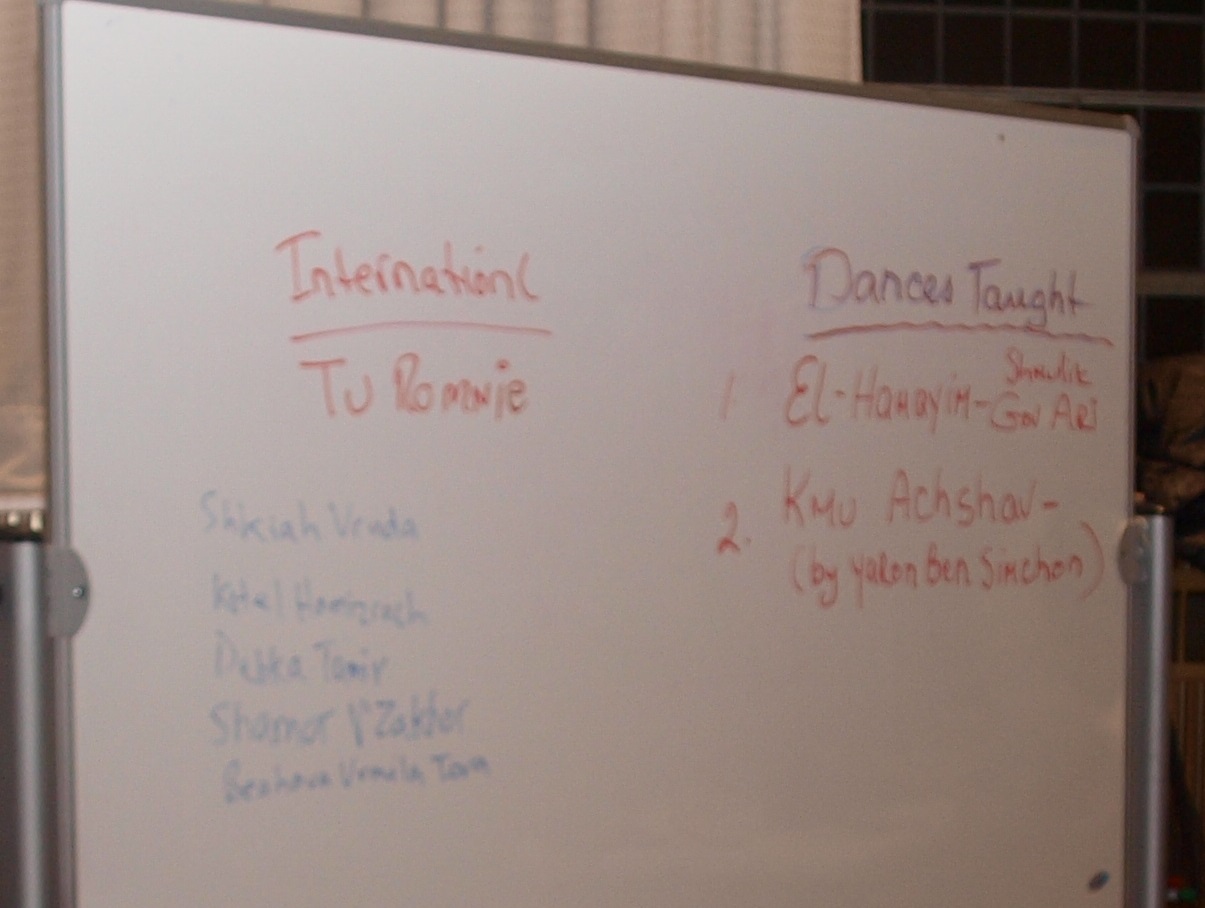 Internationl
Tu Romnie
Shkiah Vruda
Kotel Hamizrach
Debka Tamir
Shamor V'Zakhor
Vremila Tova
Dances Taught
1 El-Hamayim- Shmulik
Gov Ari
2. Kmu Achshav-
(by Yaron Ben Simchon)